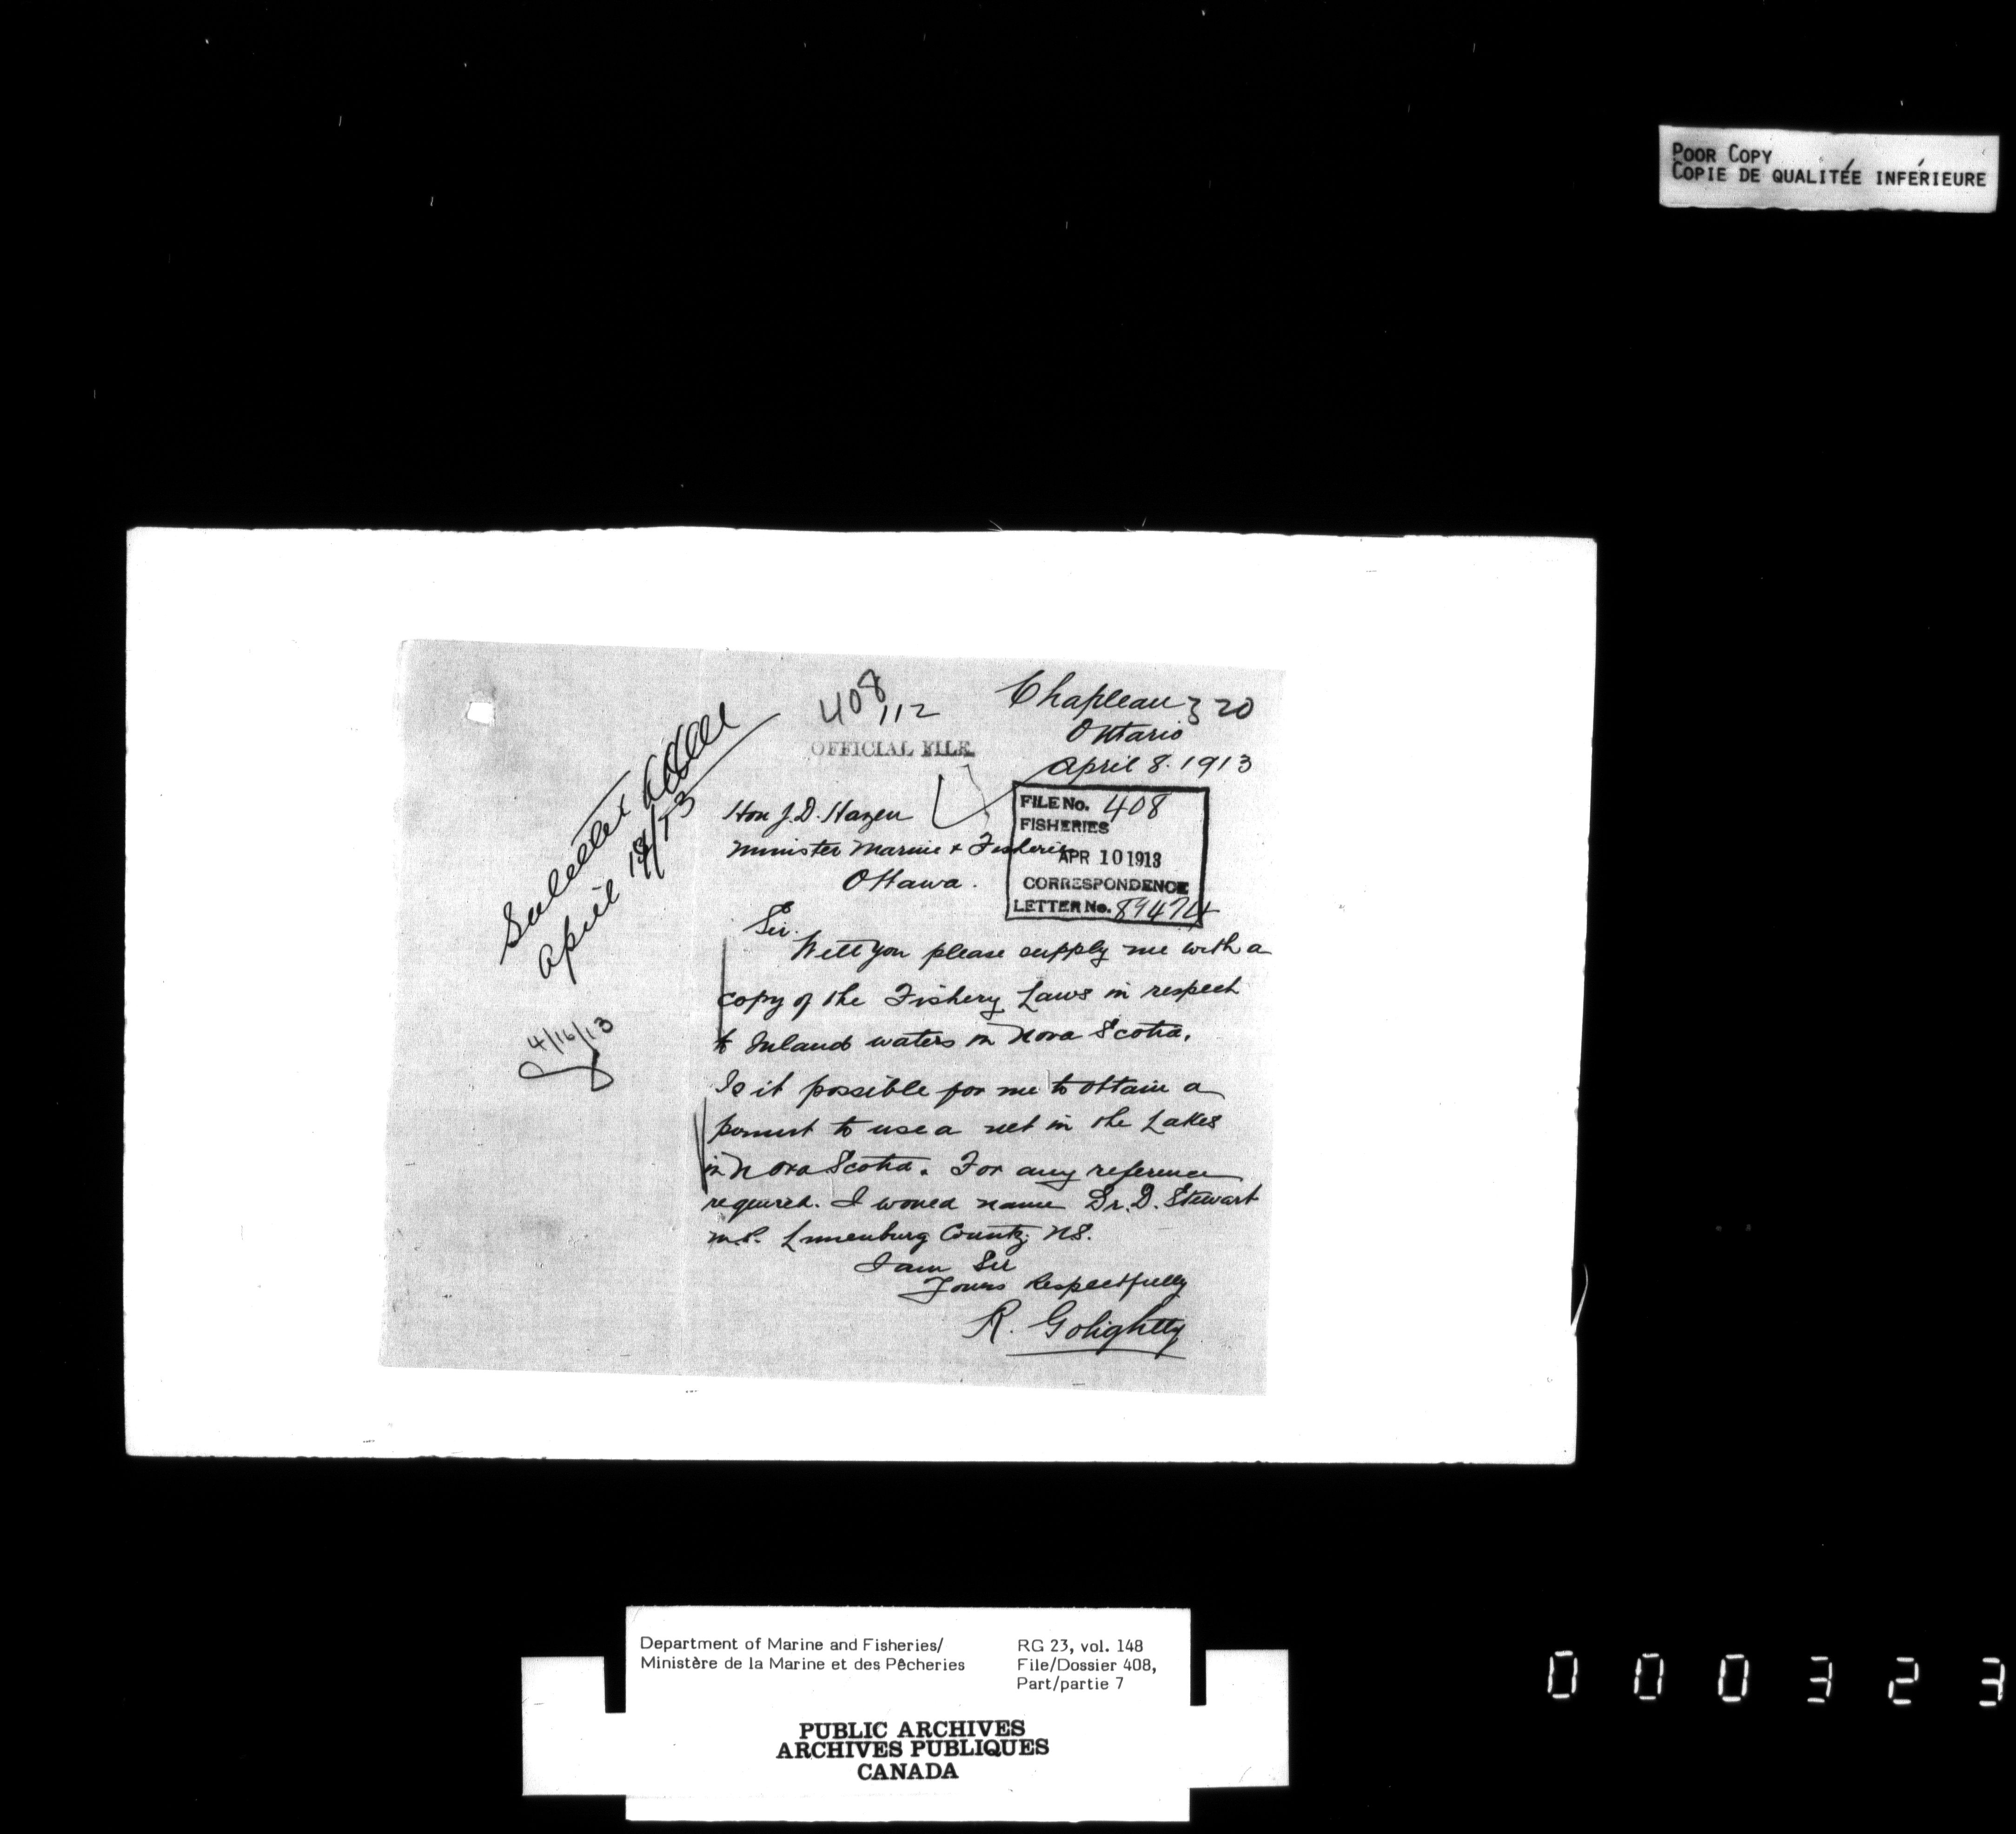 POOR COPY
COPIE DE QUALITÉE INFÉRIEURE
408
112
OFFICIAL FILE
Chapleau 320
Ontario
April 8. 1913
FILE No. 408
FISHERIES
APR 10 1913
CORRESPONDENCE
LETTER No. 89474
April 13
4/16/13
Hon J.D. Hazen
Minister Marine + Fisheries
Ottawa.
Sir.
Will you please supply me with a
copy of the Fishery Laws in respect
to Inland waters in Nova Scotia.
Is it possible for me to obtain a
permit to use a net in the Lakes
in Nova Scotia. For any reference
required. I would name Dr. D. Stewart
M.P. Lunenburg County. NS.
I am Sir
Yours Respectfully
R. Golightly
Department of Marine and Fisheries/
Ministère de la Marine et des Pêcheries
RG 23, vol. 148
File/Dossier 408,
Part/partie 7
PUBLIC ARCHIVES
ARCHIVES PUBLIQUES
CANADA
000323